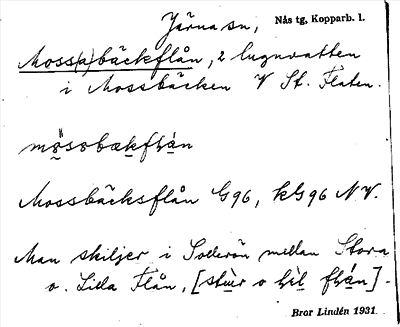 Järna sn, Nås tg, Kopparb. l.
Moss(a)bäckflån, 2 lugnvatten
i Mossbäcken V St. Flaten.
Mossbäcksflån G96, kG96 NV.
Man skiljer i Söderön mellan Stora
o. Lilla Flån,
Bror Lindén 1931